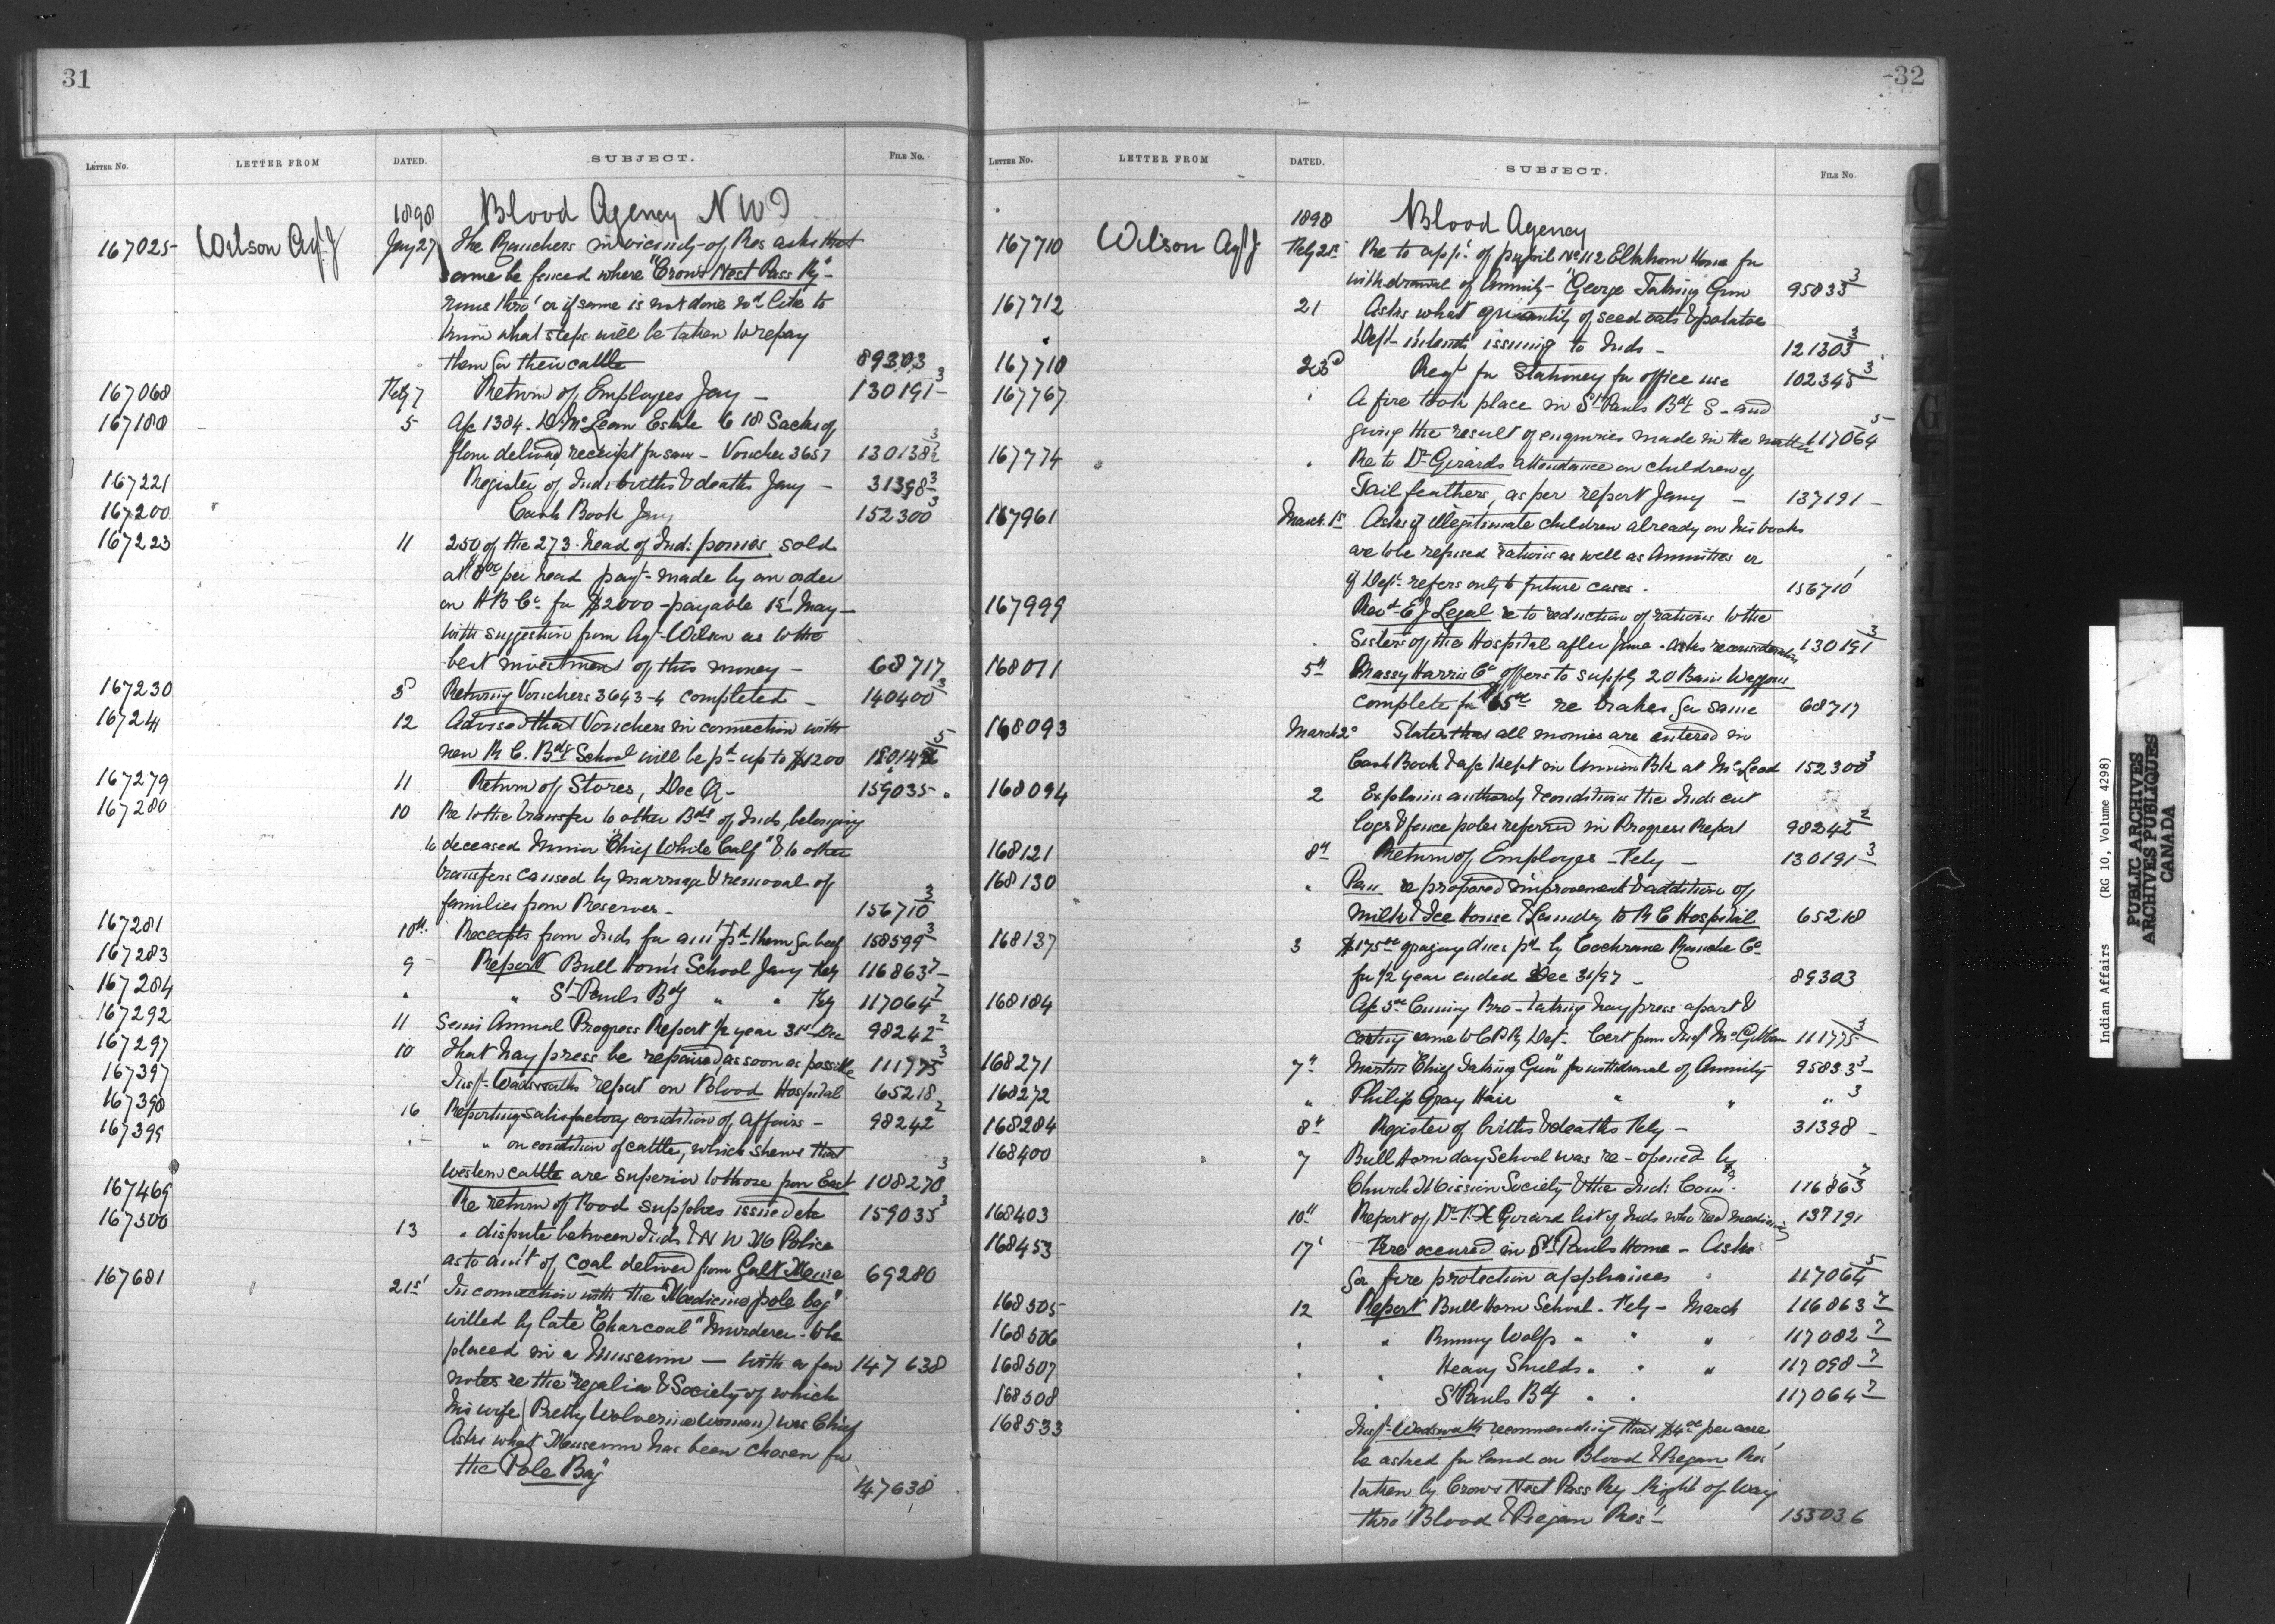 31
LETTER NO. LETTER FROM DATED. SUBJECT. FILE NO.
1898 Blood Agency N W T
167025 Wilson Agt J Jany 27 The Ranchers in vicinity of Res asks that
same be fenced where "Crows Nest Pass Ry"
runs thro' or if same is not done wd like to
know what steps will be taken to repay
them for their cattle 89303
167068 Feby 7 Return of Employees Jany - 130191-3
167180 5 A/c 1384. D McLean Estate 18 Sacks of
flour delivered, receipt for same - Voucher 3657 130138
167221 Register of Inds births & deaths Jany - 31398-3
167200 Cash Book Jany 152300 3
167223 11 250 of the 273 head of Ind: ponies sold
at 8 00 per head payt made by an order
on H B Co for $2000 - payable 1st May -
with suggestion from Agt Wilson as to the
best investment of this money - 68717
167230 5 Returning Vouchers 3643-4 completed - 140400 3
16724 12 Advised that Vouchers in connection with
new R C. Bdg School will be pd up to $1200
167279 11 Return of Stores, Dec 159035-
167280 10 Re to the transfer to other Bds of Inds, belonging
to deceased Minor "Chief White Calf" & to other
transfers caused by marriage & removal of
families from Reserves - 156710 3
167281 10th Receipts from Inds for amt pd them for beef 158599 3
167283 9 Report Bull Horns School Jany Feby 116863 7
167284 " " St Pauls Bdg " " Feby 117064 7
167292 11 Semi Annual Progress Report 1/2 year 31st Dec 98242 2
167297 10 That hay press be repaired, as soon as possible 111775 3
167397 Inspr Wadsworths report on Blood Hospital 65218
167398 16 Reporting satisfactory condition of affairs - 98242 2
167399 " on condition of cattle, which shews that
western cattle are superior to those from East 108278 3
167469 Re return of Food supplies issued etc 159035 3
167500 13 " dispute between Inds & N W M Police
as to amt of coal delivered from Galt Mine 69280
167681 21st In connection with the "Medicine pole bag"
willed by late "Charcoal" Murderer - to be
placed in a Museum - with a few 147638
notes re the "regalia & Society of which
his wife (Pretty Wolverine Woman) was Chief
Asks what Museum has been chosen for
the "Pole Bag" 147638
32
LETTER NO. LETTER FROM DATED. SUBJECT. FILE NO.
1898 Blood Agency
167710 Wilson Agt J Feby 21st Re to appn of pupil No 112 Elkhorn Home for
withdrawal of Annuity - "George Taking Gun 95833 3
167712 21 Asks what quantity of seed oats & potatoes
Dept intends issuing to Inds - 121303 3
167710 23d Reqt for Stationery for office use 102345 3
167767 " A fire took place in St Pauls Bdg S - and
giving the result of enquiries made in the matter 117064 5
167774 " Re to Dr Girards attendance on children of
Tail feathers, as per report Jany - 137191 -
167961 March 1st Asks if illegitimate children already on his books
are to be refused rations as well as Annuities or
if Dept refers only to future cases. 156710
167999 Revd E J Legal re to reduction of rations to the
Sisters of the Hospital after June - asks reconsideration 130191 3
168011 5th Massy Harris Co offers to supply 20 Bain Waggons
complete for $65 00 re brakes for same 68717
168093 March 2d States that all monies are entered in
Cash Book & a/c kept in Union Bk at McLeod 152300 3
168094 2 Explains authority & conditions the Inds cut
logs & fence poles referred in Progress Report 98242 2
168121 8th Return of Employes - Feby - 130191 3
168130 " re proposed improvements & addition of
Milk & Ice House & Laundry to R C Hospital 65218
168137 3 $175 00 grazing dues pd by Cochrane Ranche Co
for 1/2 year ended Dec 31/97 - 89303
168184 A/c 5 00 Bro - taking hay press apart &
carting same to C P Ry Dept. Cert from Inspr McGibbon 111775 3
168271 7th Martin "Chief Taking Gun" for withdrawal of Annuity 95833 3
168272 " Philip Gray Hair " " " 3
168284 8th Register of births & deaths Feby - 31398 -
168400 7 Bull Horn day School was re-opened by
Church Mission Society & the Ind: Comr. 116863 7
168403 10th Report of Dr F. X Girard list of Inds who recd medicine 137191
168453 17 Fire occurred in St Pauls Home - Asks
for fire protection appliances 117064 5
168505 12 Report Bull Horn School - Feby - March 116863 7
168506 " " Running Wolfs " " " 117082 7
168507 " " Heavy Shields " " " 117098 7
168508 " St Pauls Bdg " " 117064 7
168533 Inspr Wadsworth recommending that $4 00 per acre
be asked for land on Blood & Piegan Res
taken by Crows Nest Pass Ry Right of Way
thro' Blood & Piegan Res - 155036
Indian Affairs (RG 10, Volume 4298)
PUBLIC ARCHIVES
ARCHIVES PUBLIQUES
CANADA